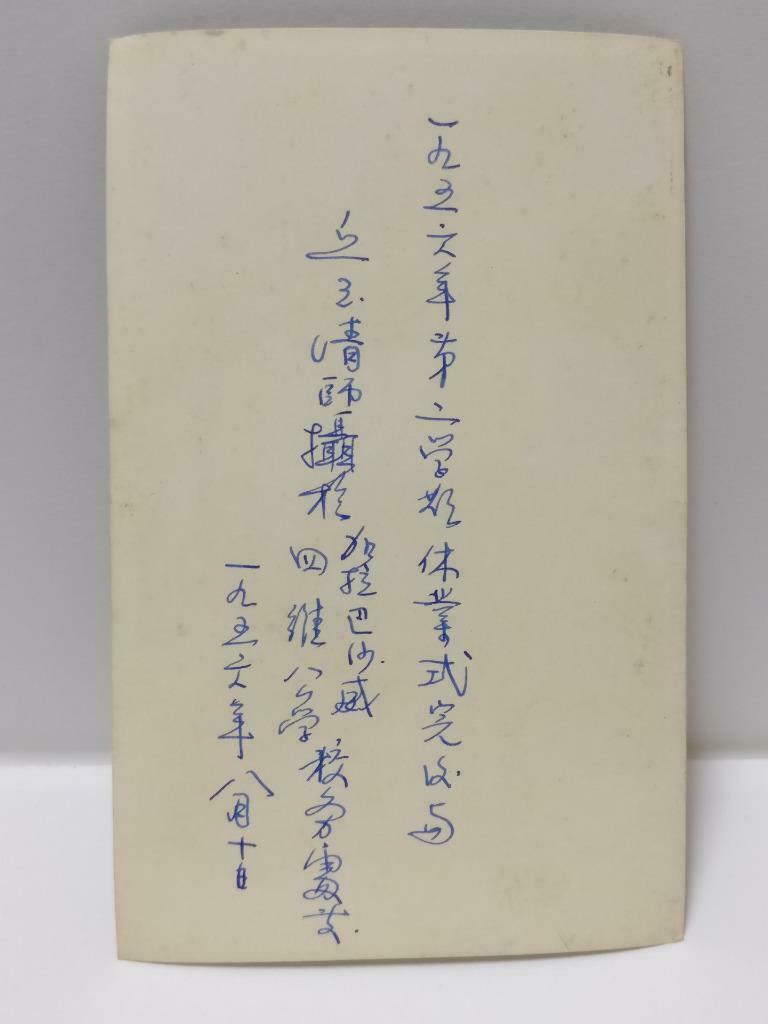 一九五六年第二学期休業式完後与
丘玉清師攝於
加拉巴沙威
四維小学校务處
一九五六年八月十日